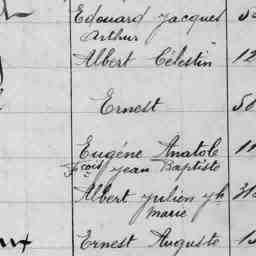 Edouard Jacques
Arthur
Albert Célestin 12
Ernest
Eugène Anatole
Fçois Jean Baptiste
Albert Julien Jh
Marie
Ernest Auguste